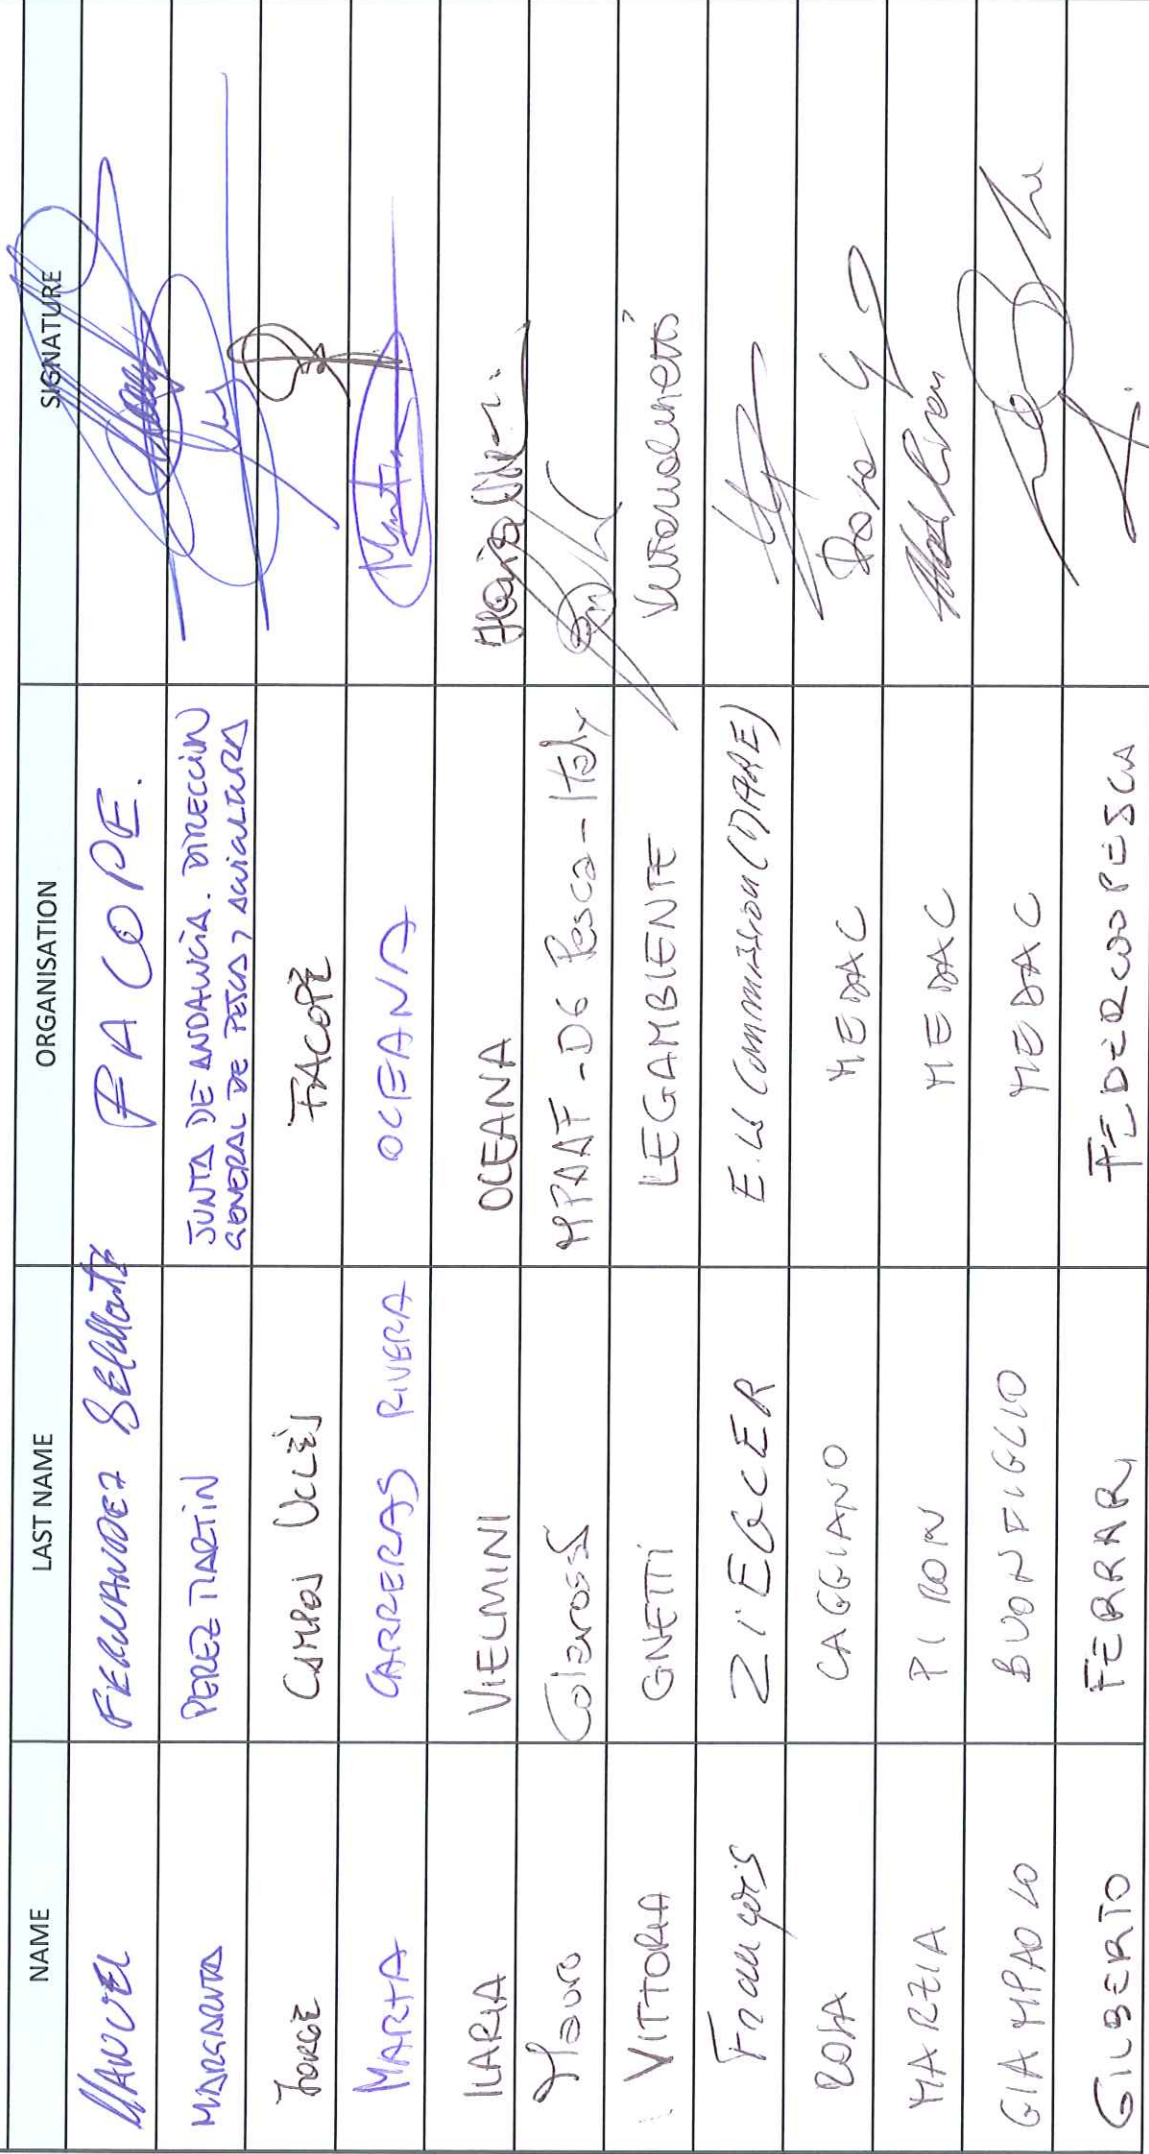 NAME LAST NAME ORGANISATION SIGNATURE
MANUEL FERNANDEZ FACOPE.
MARGARITA PEREZ MARTIN JUNTA DE ANDALUCIA. DIRECCION
GENERAL DE PESCA Y ACUICULTURA
JORGE CAMPOS UCLÉS FACOPE
MARTA CARRERAS RIVERA OCEANA Marta
ILARIA VIELMINI OCEANA Ilaria
Mauro Colarossi MPAAF - DG Pesca - Italy
VITTORIA GNETTI LEGAMBIENTE Vittoria Gnetti
François ZIEGLER E.U Commission (MARE)
ROSA CAGGIANO MEDAC Rosa
MARZIA PIRON MEDAC
GIAMPAOLO BUONFIGLIO MEDAC
GILBERTO FERRARI FEDERCOOPESCA